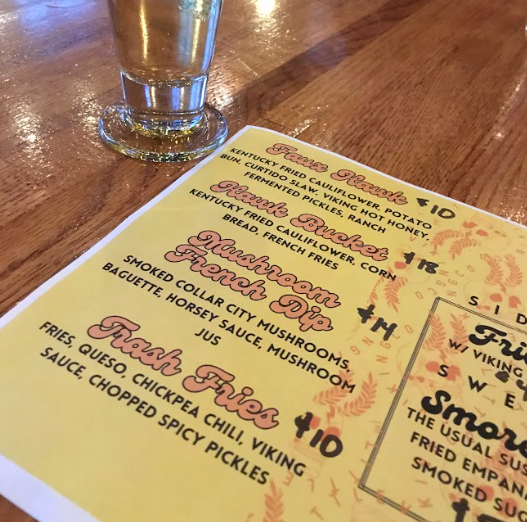 Faux Hawk $10
KENTUCKY FRIED CAULIFLOWER, POTATO
BUN, CURTIDO SLAW, VIKING HOT HONEY,
FERMENTED PICKLES, RANCH
Hawk Bucket $18
KENTUCKY FRIED CAULIFLOWER, CORN
BREAD, FRENCH FRIES
Mushroom
French Dip $14
SMOKED COLLAR CITY MUSHROOMS,
BAGUETTE, HORSEY SAUCE, MUSHROOM
JUS
Trash Fries $10
FRIES, QUESO, CHICKPEA CHILI, VIKING
SAUCE, CHOPPED SPICY PICKLES
SID
Fri
W/ VIKING
SWE
Smor
THE USUAL SUS
FRIED EMPAN
SMOKED